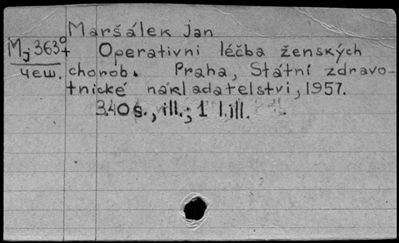 Maršálek Jan
Mj 3630/4 Operativni léčba ženských
чеш. chorob. Praha, Státní zdravo-
tnické nakladatelstvi, 1957.
340s., ill.; 1 l.ill.